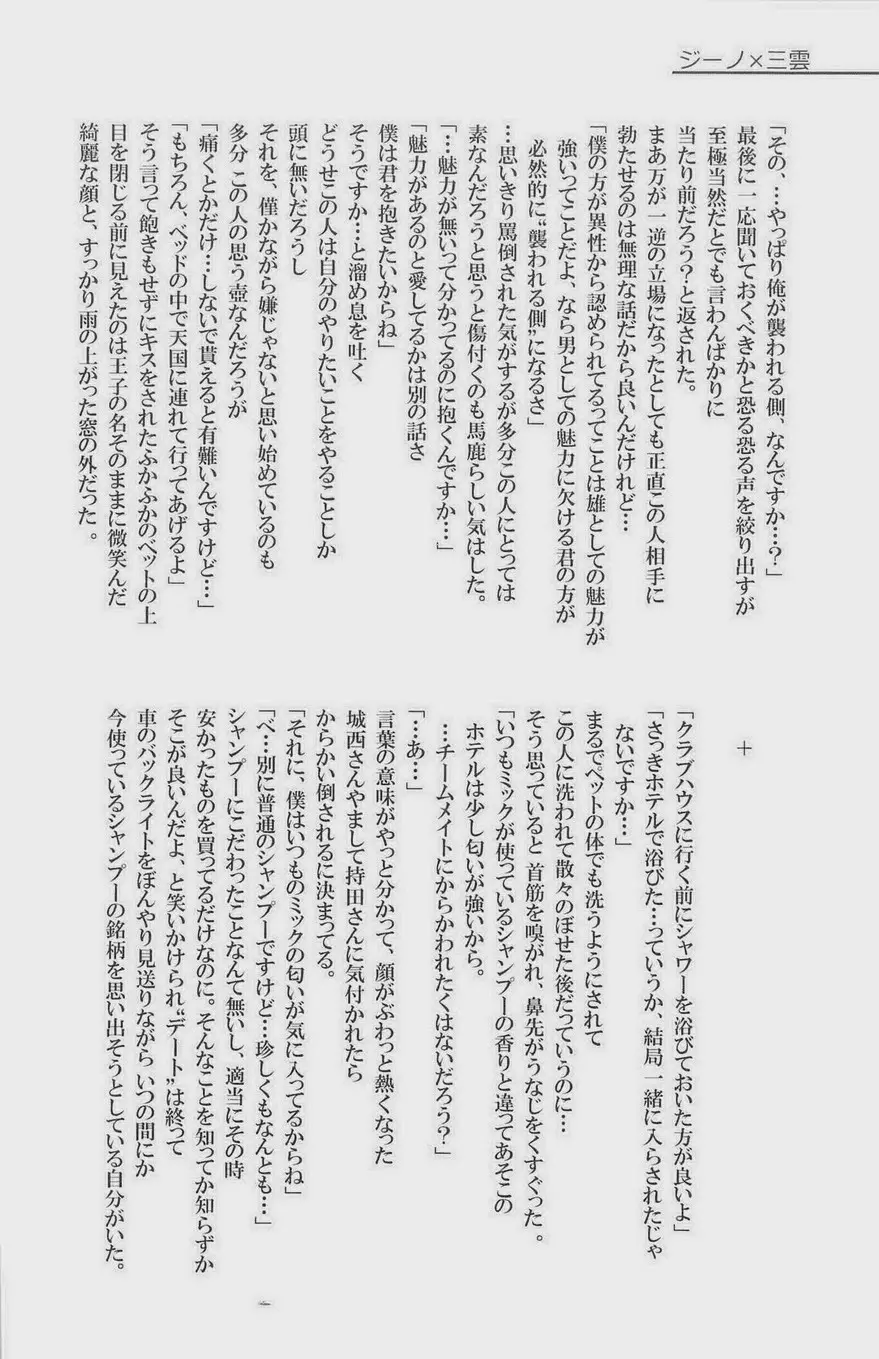 ジーノ×三雲
「その、…やっぱり俺が襲われる側、なんですか…？」
最後に一応聞いておくべきかと恐る恐る声を絞り出すが
至極当然だとでも言わんばかりに
当たり前だろう？と返された。
まあ万が一逆の立場になったとしても正直この人相手に
勃たせるのは無理な話だから良いんだけれど…
「僕の方が異性から認められてるってことは雄としての魅力が
強いってことだよ、なら男としての魅力に欠ける君の方が
必然的に“襲われる側”になるさ」
…思いきり罵倒された気がするが多分この人にとっては
素なんだろうと思うと傷付くのも馬鹿らしい気はした。
「…魅力が無いって分かってるのに抱くんですか…」
「魅力があるのと愛してるかは別の話さ
僕は君を抱きたいからね」
そうですか…と溜め息を吐く
どうせこの人は自分のやりたいことをやることしか
頭に無いだろうし
それを、僅かながら嫌じゃないと思い始めているのも
多分 この人の思う壺なんだろうが
「痛くとかだけ…しないで貰えると有難いんですけど…」
「もちろん、ベッドの中で天国に連れて行ってあげるよ」
そう言って飽きもせずにキスをされたふかふかのベットの上
目を閉じる前に見えたのは王子の名そのままに微笑んだ
綺麗な顔と、すっかり雨の上がった窓の外だった。
＋
「クラブハウスに行く前にシャワーを浴びておいた方が良いよ」
「さっきホテルで浴びた…っていうか、結局一緒に入らされたじゃ
ないですか…」
まるでペットの体でも洗うようにされて
この人に洗われて散々のぼせた後だっていうのに…
そう思っていると 首筋を嗅がれ、鼻先がうなじをくすぐった。
「いつもミックが使っているシャンプーの香りと違ってあそこの
ホテルは少し匂いが強いから。
…チームメイトにからかわれたくはないだろう？」
「…あ…」
言葉の意味がやっと分かって、顔がぶわっと熱くなった
城西さんやまして持田さんに気付かれたら
からかい倒されるに決まってる。
「それに、僕はいつものミックの匂いが気に入ってるからね」
「べ…別に普通のシャンプーですけど…珍しくもなんとも…」
シャンプーにこだわったことなんて無いし、適当にその時
安かったものを買ってるだけなのに。そんなことを知ってか知らずか
そこが良いんだよ、と笑いかけられ“デート”は終って
車のバックライトをぼんやり見送りながら いつの間にか
今使っているシャンプーの銘柄を思い出そうとしている自分がいた。